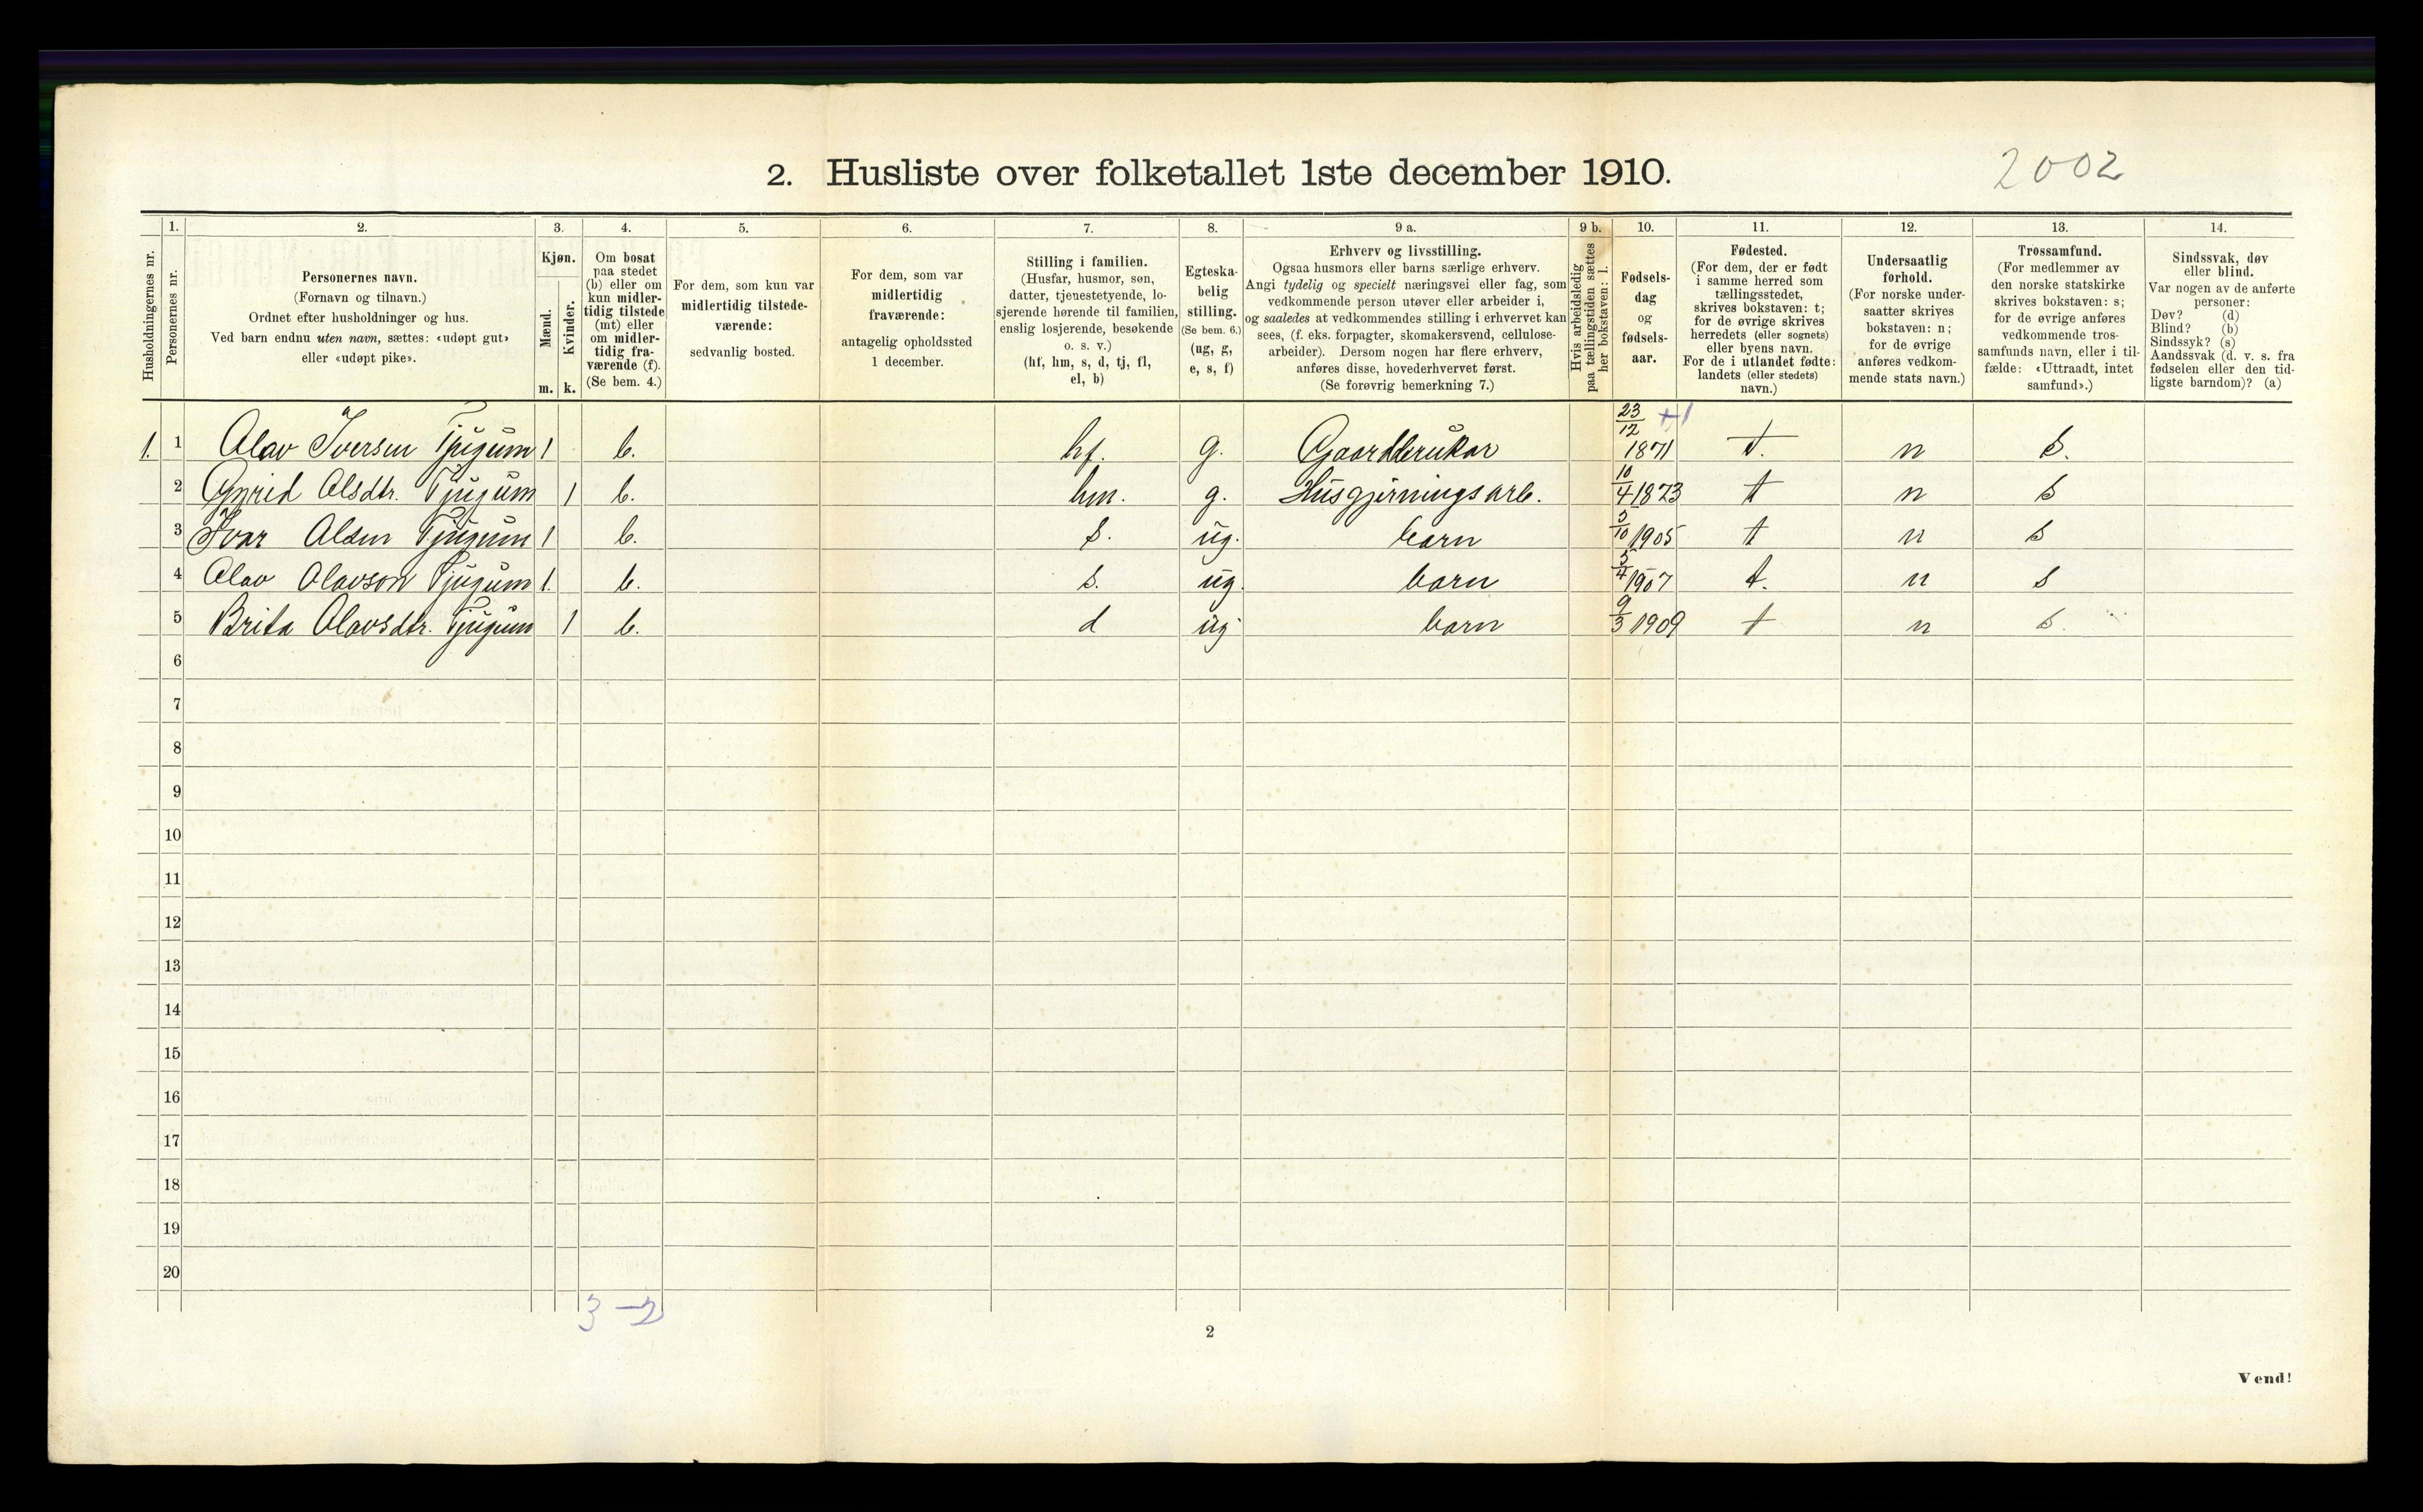 2. Husliste over folketallet 1ste december 1910.
2002
1.
2.
3.
4.
5.
6.
7.
8.
9 a.
9 b.
10.
11.
12.
13.
14.
Husholdningernes nr.
Personernes nr.
Personernes navn.
(Fornavn og tilnavn.)
Ordnet efter husholdninger og hus.
Ved barn endnu uten navn, sættes: «udøpt gut»
eller «udøpt pike».
Kjøn.
Mænd.
Kvinder.
m. k.
Om bosat
paa stedet
(b) eller om
kun midler-
tidig tilstede
(mt) eller
om midler-
tidig fra-
værende (f).
(Se bem. 4.)
For dem, som kun var
midlertidig tilstede-
værende:
sedvanlig bosted.
For dem, som var
midlertidig
fraværende:
antagelig opholdssted
1 december.
Stilling i familien.
(Husfar, husmor, søn,
datter, tjenestetyende, lo-
sjerende hørende til familien,
enslig losjerende, besøkende
o. s. v.)
(hf, hm, s, d, tj, fl,
el, b)
Egteska-
belig
stilling.
(Se bem. 6.)
(ug, g,
e, s, f)
Erhverv og livsstilling.
Ogsaa husmors eller barns særlige erhverv.
Angi tydelig og specielt næringsvei eller fag, som
vedkommende person utøver eller arbeider i,
og saaledes at vedkommendes stilling i erhvervet kan
sees, (f. eks. forpagter, skomakersvend, cellulose-
arbeider). Dersom nogen har flere erhverv,
anføres disse, hovederhvervet først.
(Se forøvrig bemerkning 7.)
Hvis arbeidsledig
paa tællingstiden sættes
her bokstaven: l.
Fødsels-
dag
og
fødsels-
aar.
Fødested.
(For dem, der er født
i samme herred som
tællingsstedet,
skrives bokstaven: t;
for de øvrige skrives
herredets (eller sognets)
eller byens navn.
For de i utlandet fødte:
landets (eller stedets)
navn.)
Undersaatlig
forhold.
(For norske under-
saatter skrives
bokstaven: n;
for de øvrige
anføres vedkom-
mende stats navn.)
Trossamfund.
(For medlemmer av
den norske statskirke
skrives bokstaven: s;
for de øvrige anføres
vedkommende tros-
samfunds navn, eller i til-
fælde: «Uttraadt, intet
samfund».)
Sindssvak, døv
eller blind.
Var nogen av de anførte
personer:
Døv? (d)
Blind? (b)
Sindssyk? (s)
Aandssvak (d. v. s. fra
fødselen eller den tid-
ligste barndom)? (a)
1. 1 Olav Iversen Tjugum 1 b. hf. g. Gaardbrukar 23/12 1871 t. n s.
2 Gyrid Olsdtr. Tjugum 1 b. hm. g. Husgjerningsarb. 10/4 1873 t n s
3 Ivar Olsen Tjugum 1 b. s. ug. barn 5/10 1905 t n s
4 Olav Olavson Tjugum 1. b. s. ug. barn 5/4 1907 t. n s
5 Brita Olavsdtr. Tjugum 1 b. d ug barn 9/3 1909 t n s.
6
7
8
9
10
11
12
13
14
15
16
17
18
19
20
3 - 2
2
Vend!